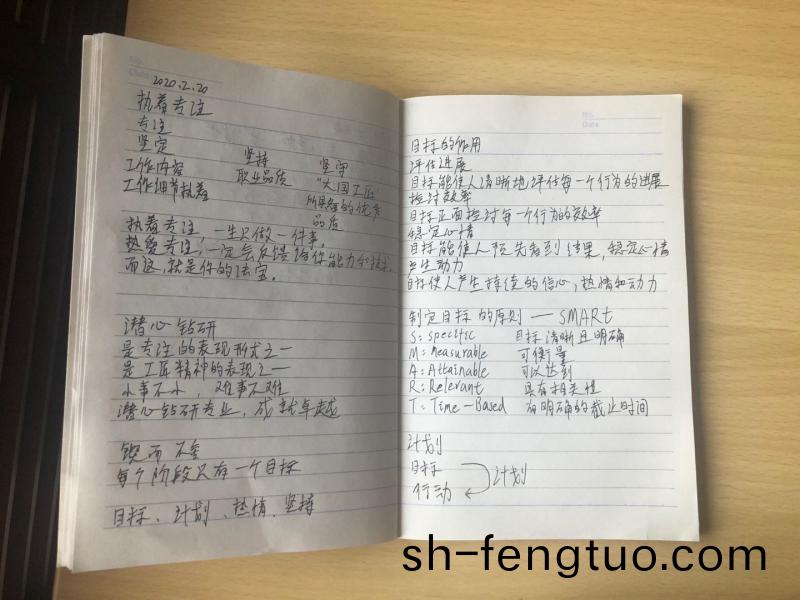 2020.2.20
执着专注
专注
坚定 坚持 坚守
工作内容 职业品质 "大国工匠"
工作细节执着 所具备的优秀
品质
执着专注 一生只做一件事。
热爱专注,一定会反馈给你能力和技术,
而这,就是你的法宝。
潜心钻研
是专注的表现形式之一
是工匠精神的表现之一
难事不难
潜心钻研专业,成就卓越
锲而不舍
每个阶段只有一个目标
目标、计划、热情、坚持
No.
Date
目标的作用
评估进展
目标能使人清晰地评估每一个行为的进展
检讨效率
目标正面检讨每一个行为的效率
稳定心情
目标能使人预先看到结果,稳定心情
产生动力
目标使人产生持续的信心,热情和动力
制定目标的原则 — SMARt
S: specific 目标清晰且明确
M: Measurable 可衡量
A: Attainable 可以达到
R: Relevant 具有相关性
T: Time-Based 有明确的截止时间
计划
目标
计划
行动
sh-fengtuo.com